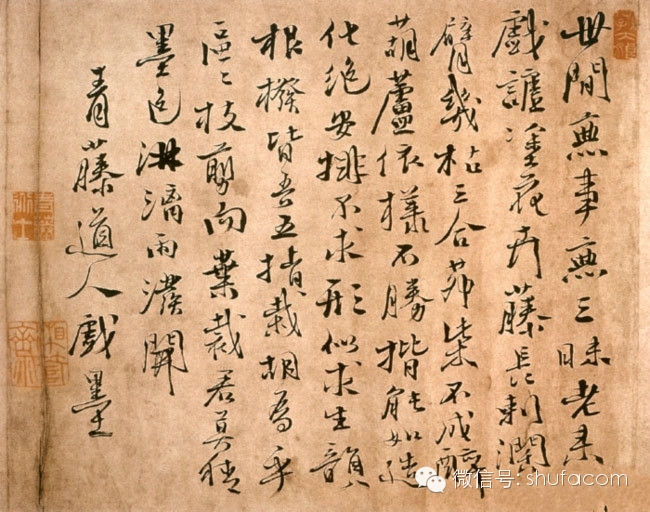 世間無事無三昧老来
戲謔塗花卉藤長刺闊
臂幾枯三合茆柴不成醉
葫蘆依樣不勝揩能如造
化絶安排不求形似求生韻
根撥皆吾五指栽胡爲乎
區〻枝剪而葉裁君莫猜
墨色淋漓雨潑開
青藤道人戲墨
微信号: shufacom